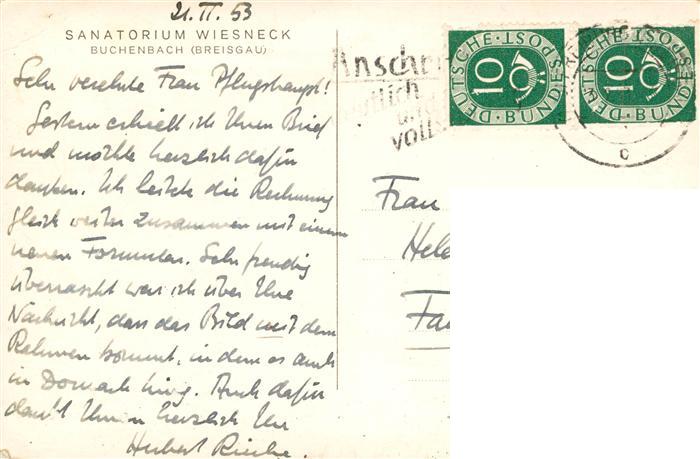 21.II.53
SANATORIUM WIESNECK
BUCHENBACH (BREISGAU)
Sehr verehrte Frau Pflugshaupt!
Gestern erhielt ich Ihren Brief
und möchte herzlich dafür
danken. Ich leitete die Rechnung
gleich weiter zusammen mit einem
neuen Formular. Sehr freudig
überrascht war ich über Ihre
Nachricht, dass das Bild mit dem
Rahmen kommt, in dem es auch
in Dornach hing. Auch dafür
dankt Ihnen herzlich Ihr
Hubert
DEUTSCHE·POST·BUNDES
10
DEUTSCHE·POST·BUNDES
10
Ansch
tlich
und
voll
c
Frau
Hel
Fa